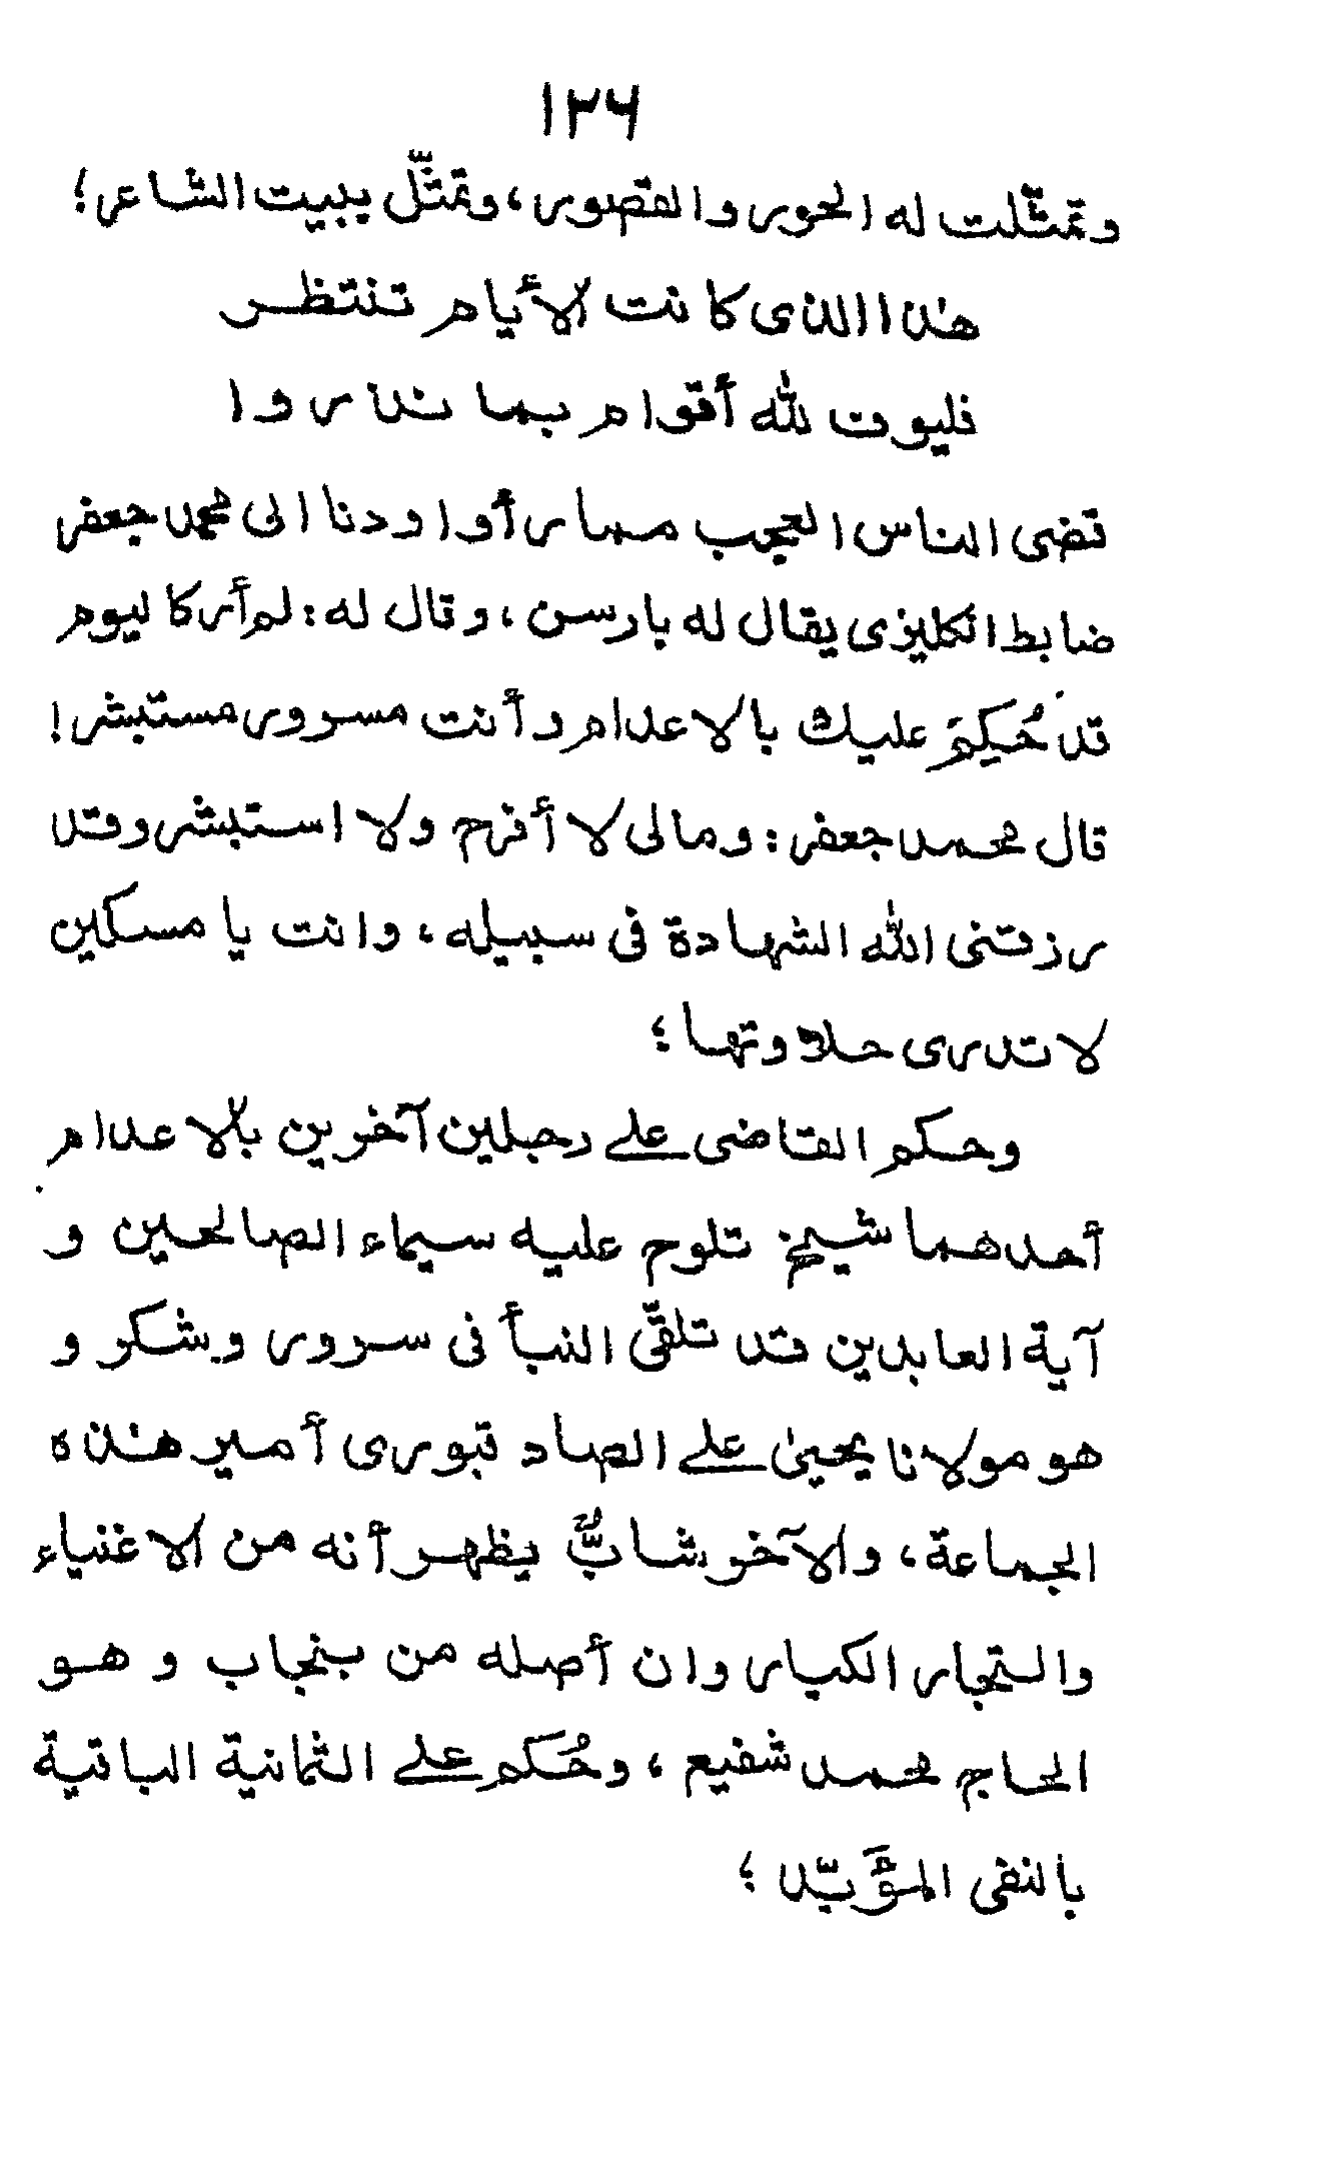 ١٢٦
وتمثّلت له الحور والقصور، وتمثّل ببيت الشاعر؛
هذا الذى كانت الأيام تنتظر
فليوف لله أقوام بما نذروا
قضى الناس العجب مما رأوا ودنا الى محمد جعفر
ضابط انكليزى يقال له بارسن، وقال له: لم أر كاليوم
قد حُكِمَ عليك بالاعدام وأنت مسرور مستبشر!
قال محمد جعفر: ومالى لا أفرح ولا استبشر وقد
رزقنى الله الشهادة فى سبيله، وانت يا مسكين
لا تدرى حلاوتها؛
وحكم القاضى على رجلين آخرين بالاعدام
أحدهما شيخ تلوح عليه سيماء الصالحين و
آية العابدين قد تلقّى النبأ فى سرور وشكر و
هو مولانا يحيىٰ على الصادقبورى أمير هذه
الجماعة، والآخر شابٌّ يظهر أنه من الاغنياء
والتجار الكبار وان أصله من بنجاب و هو
الحاج محمد شفيع، وحُكم على الثمانية الباقية
بالنفى المؤَبّد؛